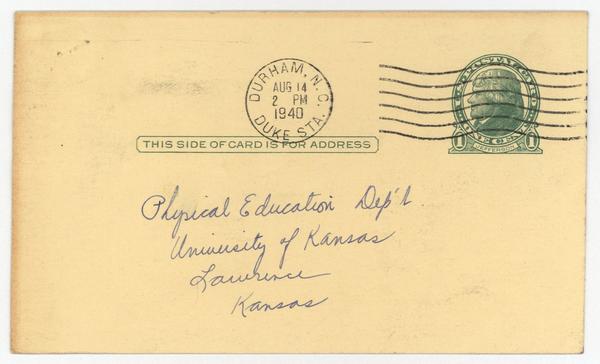 DURHAM, N.C.
AUG 14
2 PM
1940
DUKE STA.
U.S. POSTAL CARD
ONE CENT
1 JEFFERSON 1
THIS SIDE OF CARD IS FOR ADDRESS
Physical Education Dep't.
University of Kansas
Lawrence
Kansas